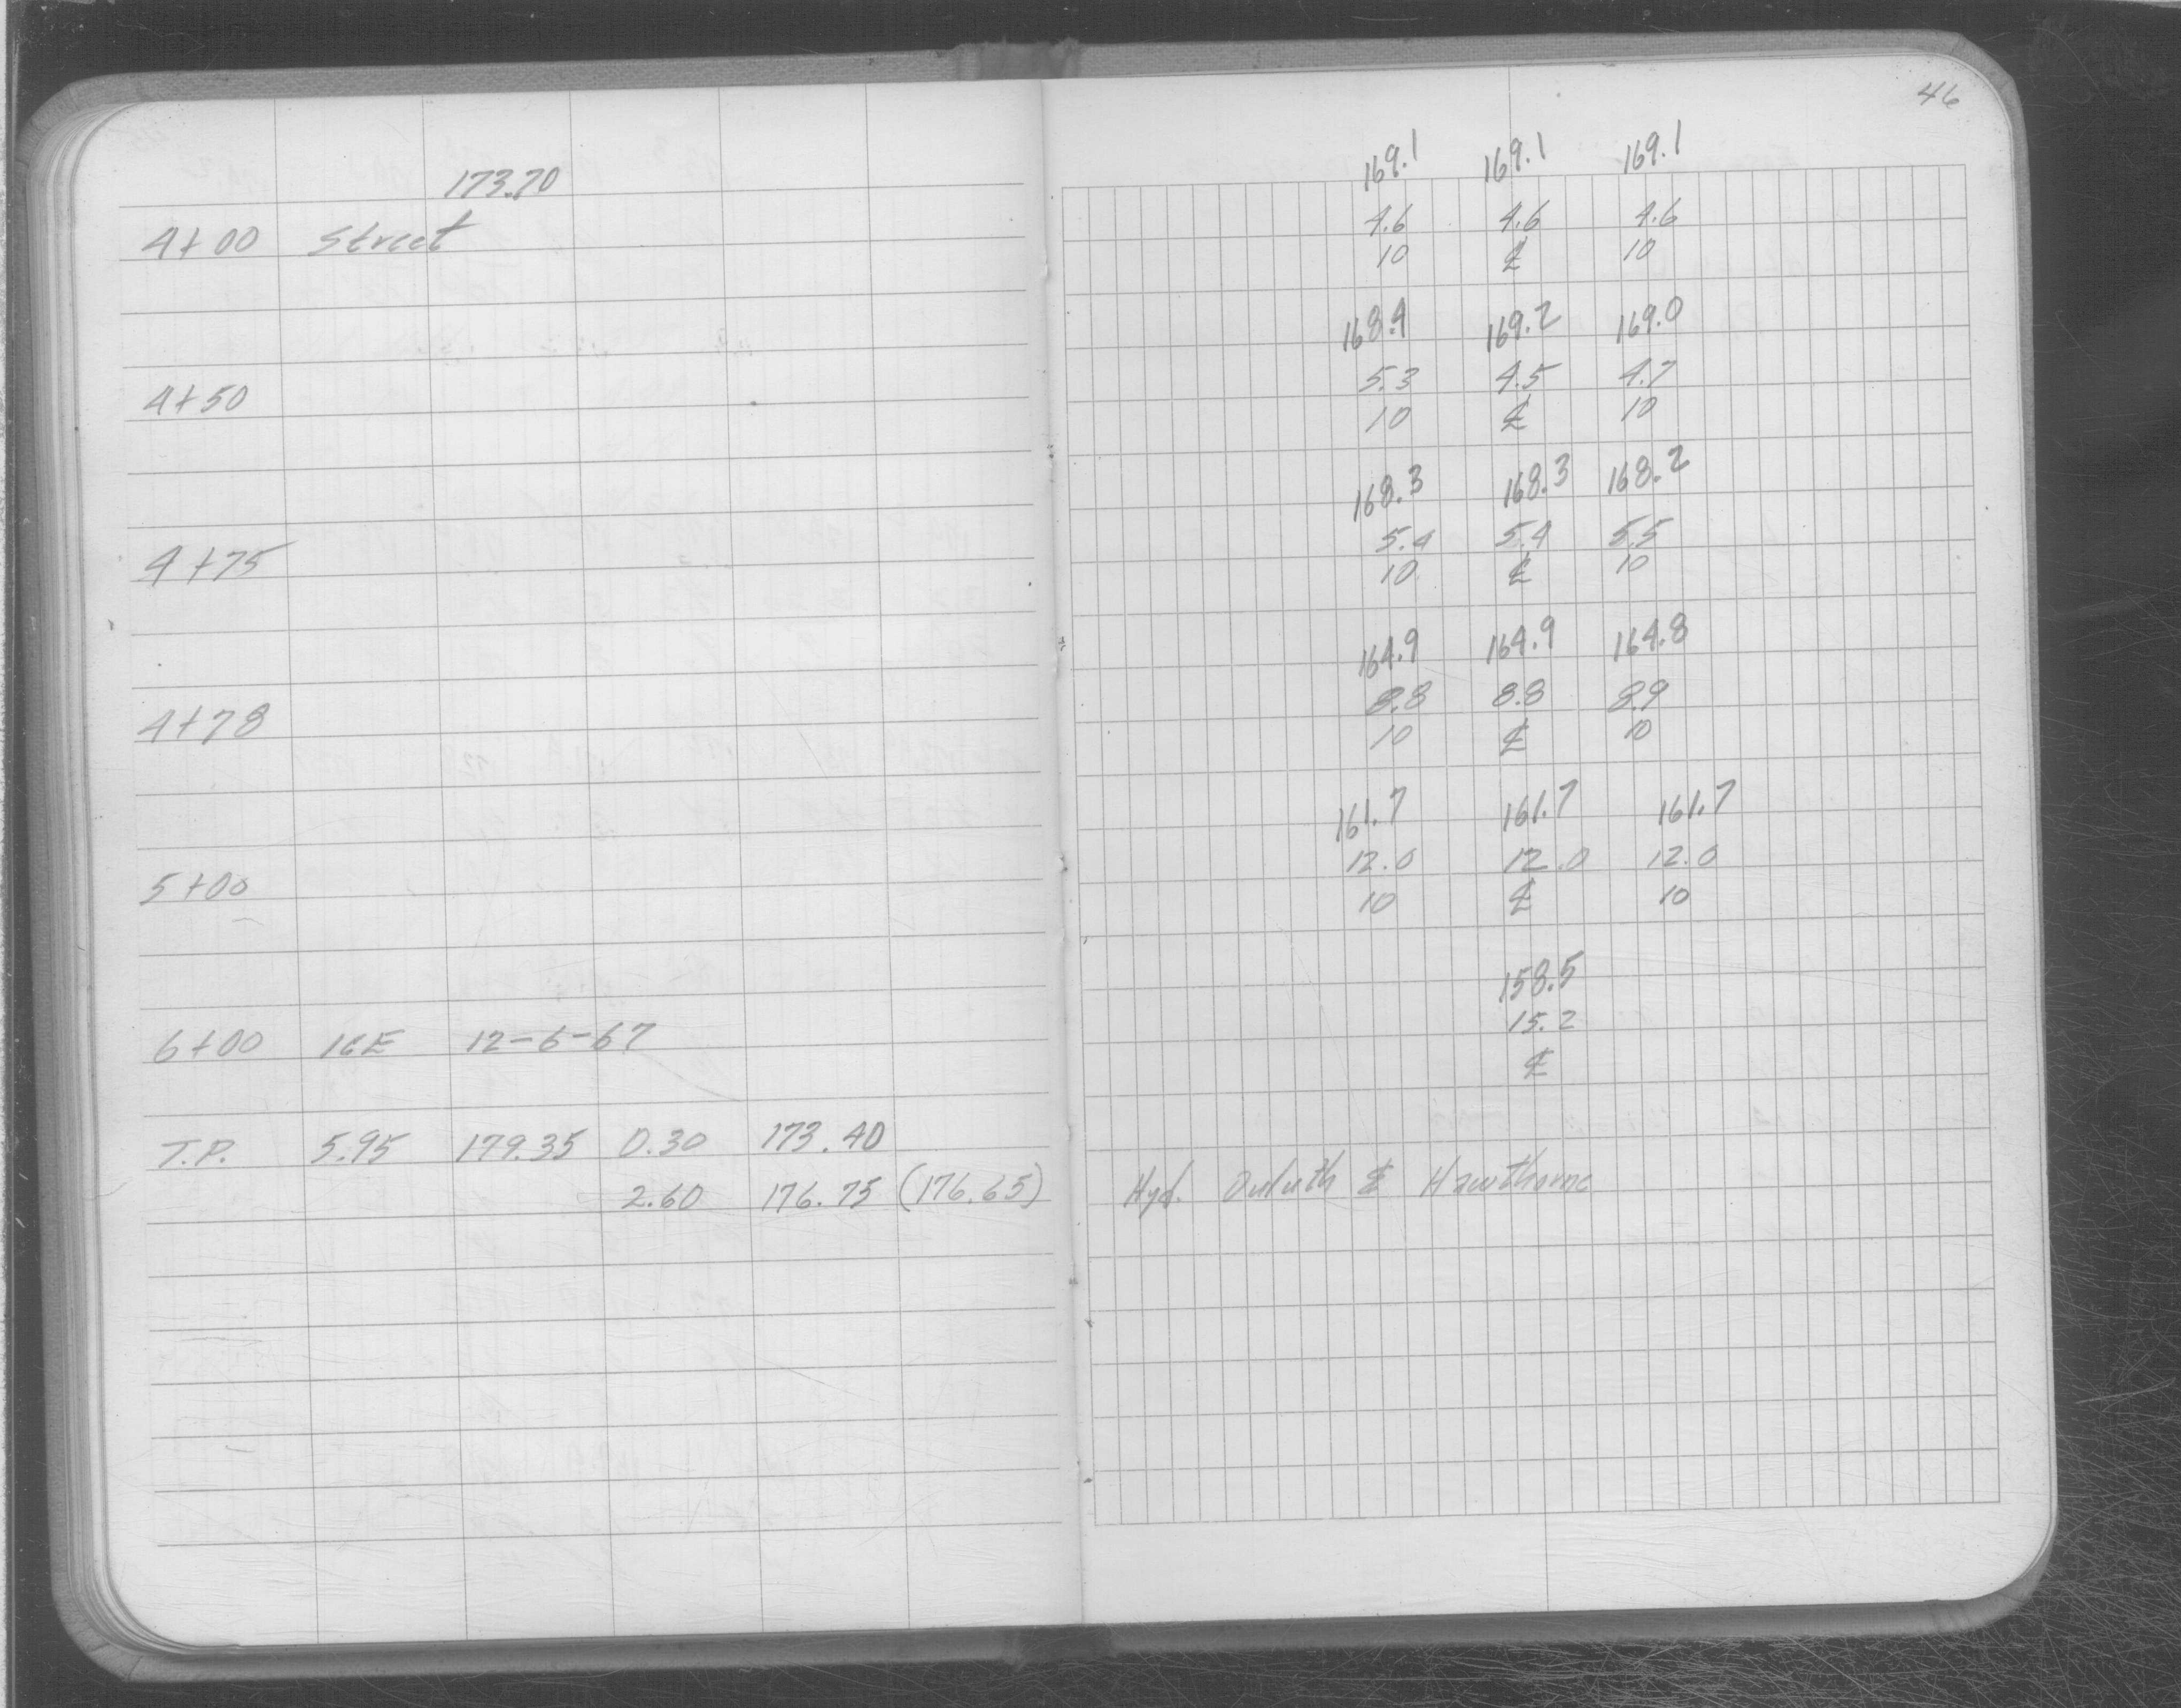 46
173.70
169.1 169.1 169.1
4+00 Street
4.6 4.6 4.6
10 ℄ 10
168.4 169.2 169.0
4+50
5.3 4.5 4.7
10 ℄ 10
168.3 168.3 168.2
4+75
5.4 5.4 5.5
10 ℄ 10
164.9 164.9 164.8
4+78
8.8 8.8 8.9
10 ℄ 10
161.7 161.7 161.7
5+00
12.0 12.0 12.0
10 ℄ 10
158.5
15.2
6+00 ICE 12-6-67
℄
T.P. 5.95 179.35 0.30 173.40
2.60 176.75 (176.65) Hyd. Duluth & Hawthorne